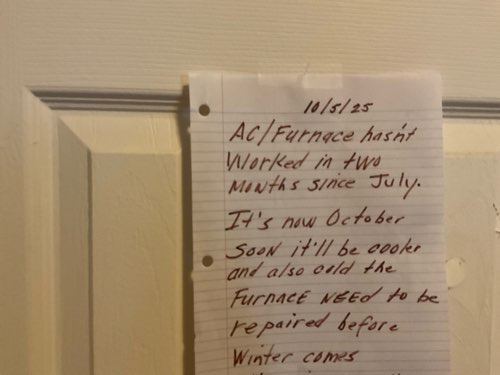 10/5/25
AC/Furnace hasn't
Worked in two
Months since July.
It's now October
Soon it'll be cooler
and also cold the
Furnace need to be
repaired before
Winter comes